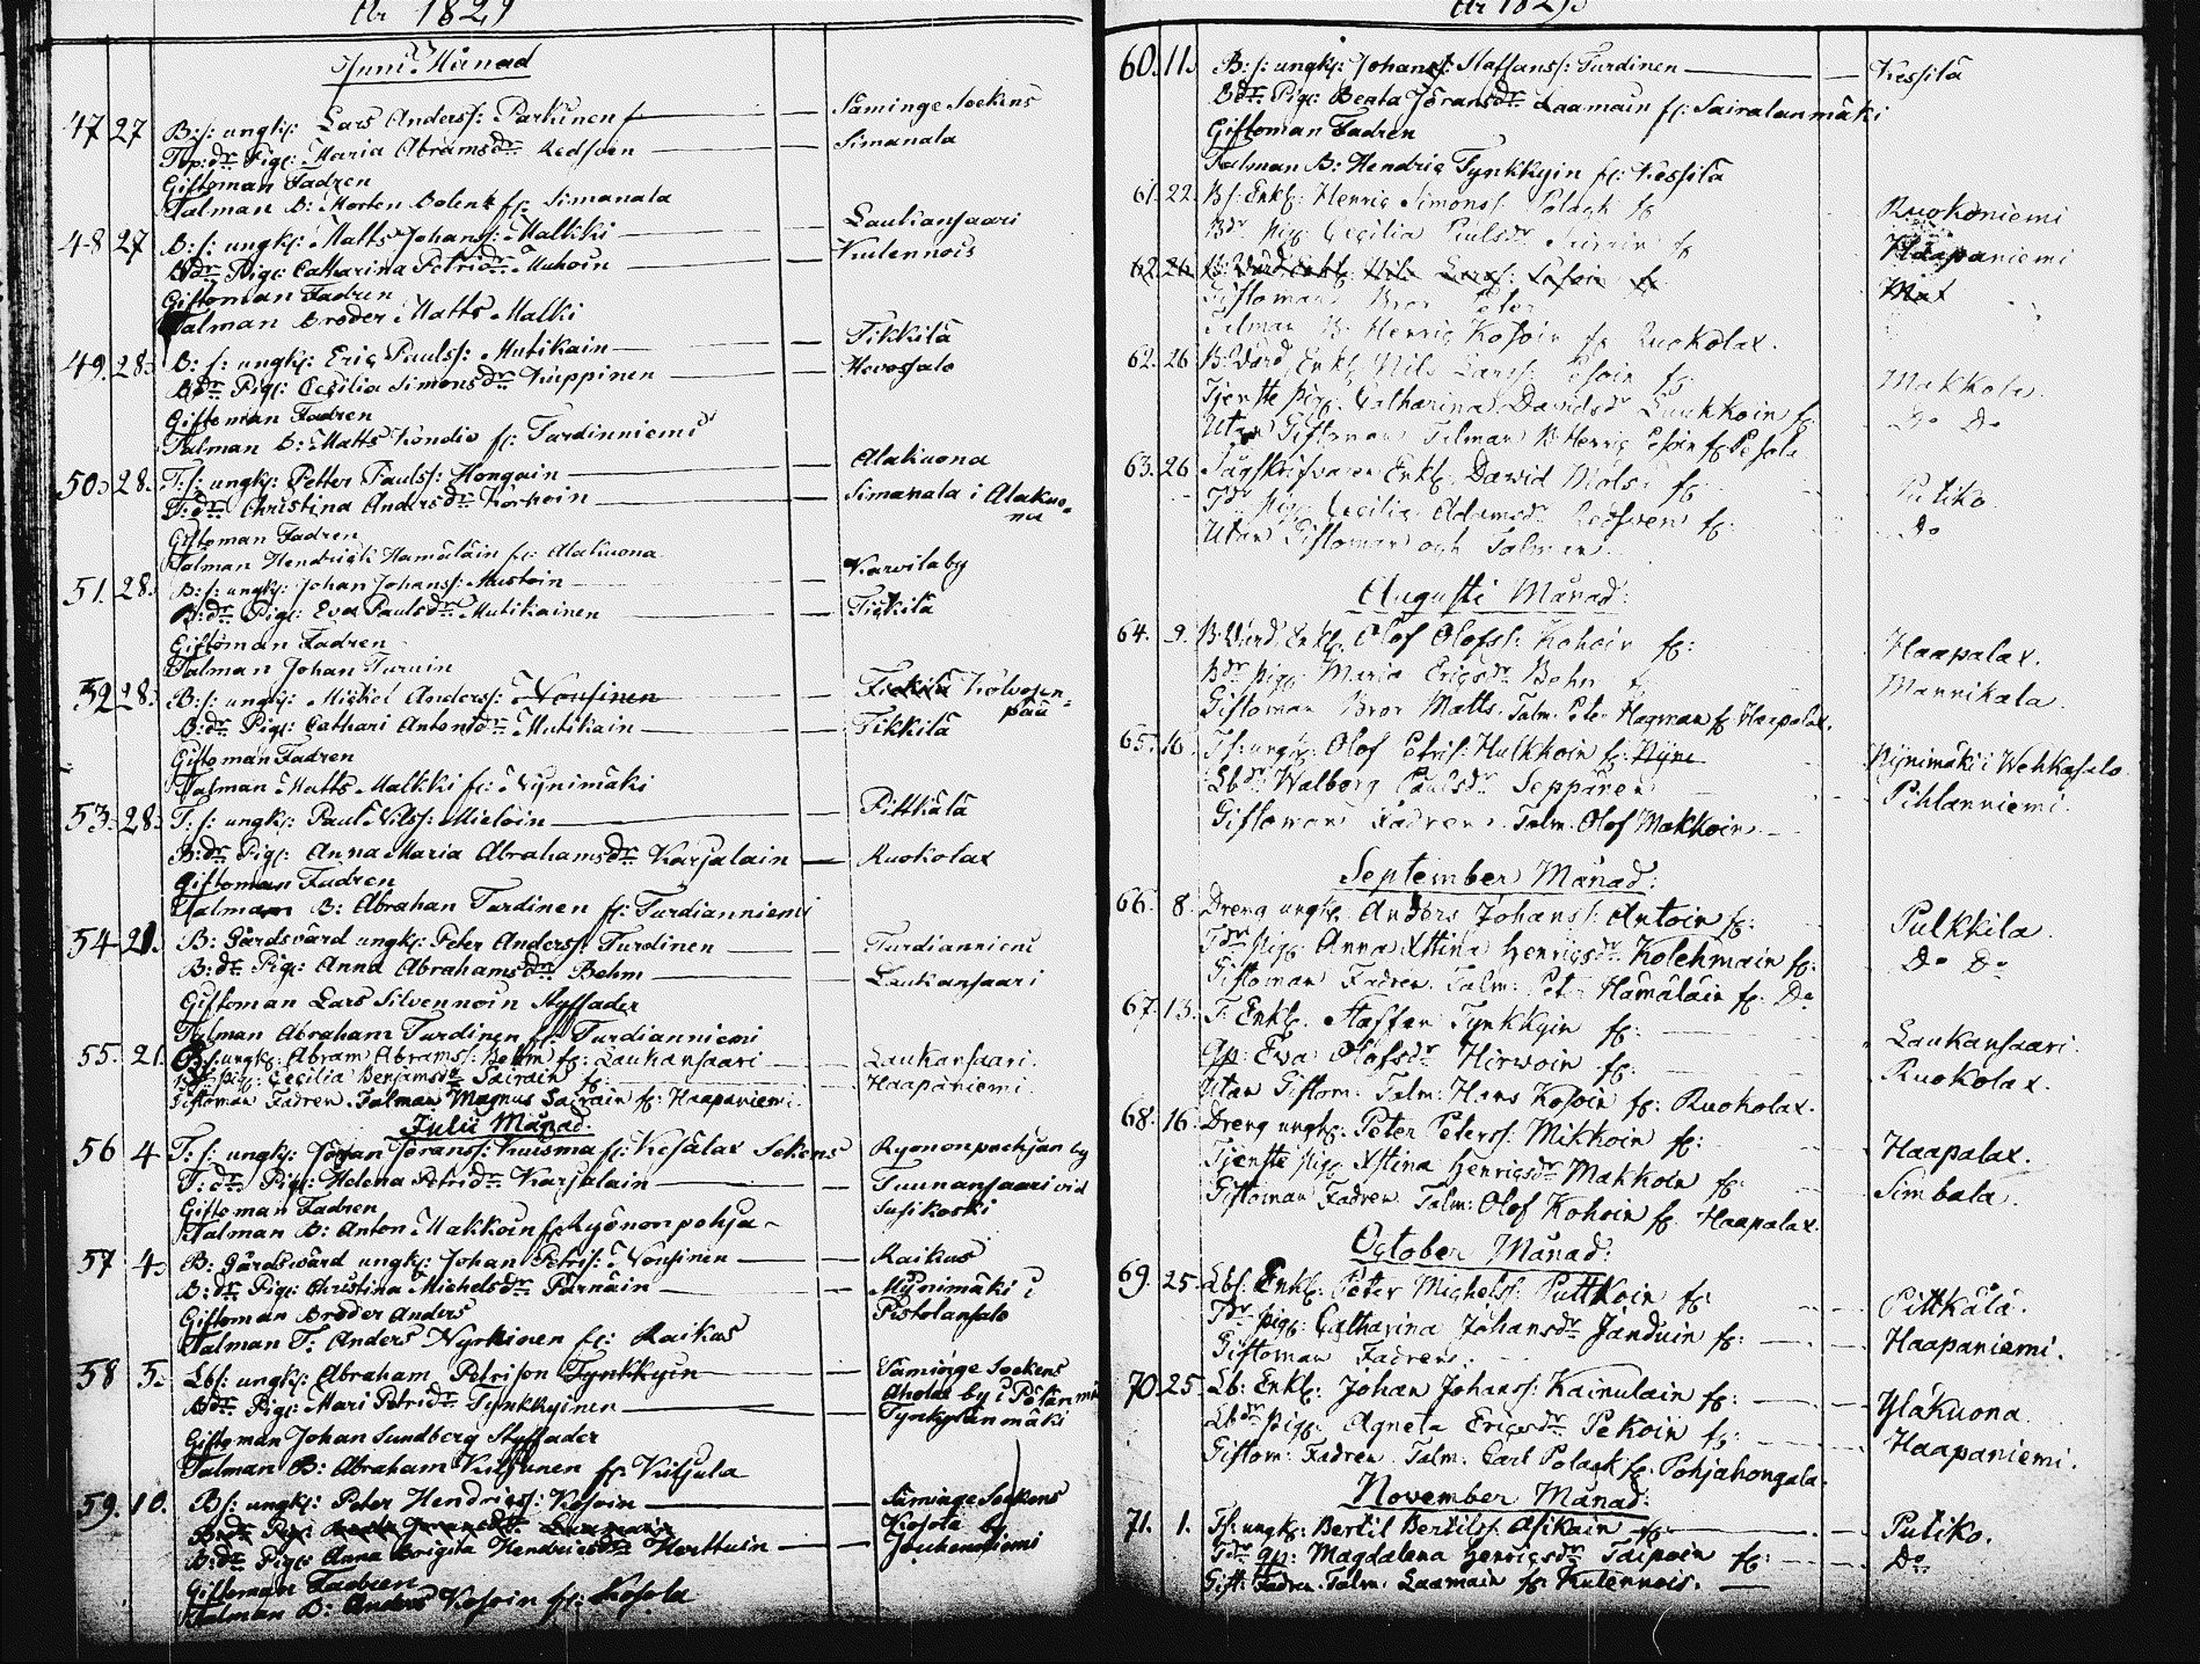 År 1829
Juni Månad
47 27 B: s: ungk: Lars Anderss: Parkinen fr Säminge Sockens
Tp: dr Pig: Maria Abramsdr Redsven Simanala
Giftoman Fadren
Talman B: Morten Bolent fr: Simanala
48 27 B: s: ungk: Matts Johanss: Malkki Laukansaari
Bdr Pig: Catharina Petridr Muhoin Kulennois
Giftoman Fadren
Talman Broder Matts Malki
49. 28. B: s: ungk: Eric Paulss: Mutikain Tikkilä
Bdr Pig: Cecilia Simonsdr Kuippinen Hevossalo
Giftoman Fadren
Talman B: Matts Kondie fr: Turdinniemi
50. 28. T: s: ungk: Petter Paulss: Hongain Alakuona
T: dr: Christina Andersdr Korhoin Simanala i Alakuo-
na
Giftoman Fadren
Talman Hendrick Hämäläin fr: Alakuona
51. 28. B: s: ungk: Johan Johanss: Mustoin Karvilaby
B: dr: Pig: Eva Paulsdr Mutikainen Tickilä
Giftoman Fadren
Talman Johan Turuin
52 28. B: s: ungk: Mickel Anderss: Nousinen Tickilä Kolvosen-
pää
B: dr: Pig: Cathari Antonsdr Mutikain Tikkilä
Giftoman Fadren
Talman Matts Malkki fr: Nynimäki
53. 28. T: s: ungk: Paul Nilss: Mieloin Pittkälä
B: dr: Pig: Anna Maria Abrahamsdr Karjalain Ruokolax
Giftoman Fadren
Talman B: Abrahan Turdinen fr: Turdianniemi
54 21. B: Gårdsvärd ungk: Peter Anderss: Turdinen Turdianniemi
B: dr Pig: Anna Abrahamsdr Behm Laukansaari
Giftoman Lars Silvennoin Styffader
Talman Abraham Turdinen fr: Turdianniemi
55. 21. B: s: ungk: Abram Abramss: Behm fr: Laukansaari Laukansaari.
Bdr Pig: Cecilia Benjamsdr Sairain fr: Haapaniemi.
Giftoman Fadren. Talman Magnus Sairain fr: Haapaniemi.
Julii Månad.
56 4 T: s: ungk: Jöran Jöranss: Kuisma fr: Kesälax Sokens Ryönonpochjan by
T: dr: Pig: Helena Petridr Karjalain Tuunansaari vid
Giftoman Fadren Susikoski
Talman B: Anton Makkoin fr Ryönonpohja
57 4. B: Gårdswärd ungk: Johan Petris: Nousinen Raikus
B: dr: Pig: Christina Michelsdr Pärnäin Mynimäki i
Giftoman Broder Anders Pistolansalo
Talman T: Anders Nyrkinen fr: Raikus
58 5. Lbs: ungk: Abraham Petrison Tynkkyin Säminge Sockens
Bdr: Pig: Mari Petridr Tynkkyinen Ahola by i
Giftoman Johan Sundberg Styffader
Talman B: Abraham Kiiljunen fr: Kiiljula
59. 10. B: s: ungk: Peter Hendricss: Kosoin Säminge Sockens
Kosola by
B: dr Pig: Anna Brigita Hendricsdr Herttuin Jouhenniemi
Giftoman Fadren
Talman B: Anders Kosoin fr: Kosola
År 1829
60. 11. B: s: ungk: Johan Staffanss: Turdinen Kessilä
Bdr: Pig: Beata Jöransdr Laamain fr: Sairalanmäki
Giftoman Fadren
Talman B: Hendric Tynkkyin fr: Kessilä
61. 22. Bs: Enkl: Henric Simonss: Polack fr Ruokoniemi
Bdr pig: Cecilia Paulsdr Sairain fr Haapaniemi
62. 26. B: Värd Enkl: Nils Larss: fr Mak
Giftoman Bror Peter
Talman B: Henric Kosoin fr Ruokolax.
62. 26 B: Värd Enkl: Nils Larss: fr Makkola.
Tjenste pig: Catharina Davidsdr Luukkoin fr Do Do
Utan Giftoman Talman B: Henric
63. 26 Enkl. David fr Putiko
Tdr pig: Cecilia Adamsdr Redsven fr: Do
Utan Giftoman och Talman
Augusti Månad:
64. 9. B: Värd Enkl: Olof Olofss: Kohoin fr: Haapalax.
Bdr pig: Maria Ericsdr Behm fr Mannikala.
Giftoman Bror Matts. Talm: Peter Hagman fr Haapalax.
65. 10. Ts: ungk: Olof Petris: Hulkkoin fr: Nyni Nynimäki i Wehkasalo
Lbdr Walborg Paulsdr Seppänen Pihlanniemi.
Giftoman Fadren. Talm: Olof Makkoin.
September Månad:
66. 8. Dreng ungk: Anders Johanss: Antoin fr: Pulkkila.
Tdr pig: Anna Xstina Henricsdr Kolehmain fr: Do Do
Giftoman Fadren. Talm: Peter Hämäläin fr: Do
67. 13. T: Enkl: Staffan Tynkkyin fr: Laukansaari.
Gp: Ewa Olofsdr Hirwoin fr: Ruokolax.
Utan Giftom: Talm: Hans Kosoin fr: Ruokolax.
68. 16. Dreng ungk: Peter Peterss: Mikkoin fr: Haapalax.
Tjenste pig: Xstina Henricsdr Makkoin fr: Simbala.
Giftoman Fadren. Talm: Olof Kohoin fr: Haapalax.
October Månad:
69. 25. Lbs: Enkl: Peter Michelss: Puttkoin fr: Pittkälä.
Tdr pig: Catharina Johansdr Janduin fr: Haapaniemi.
Giftoman Fadren.
70. 25. Lb: Enkl: Johan Johanss: Kainulain fr: Yläkuona.
Lbdr pig: Agneta Ericsdr Pekoin fr: Haapaniemi.
Giftom: Fadren. Talm: Carl Polack fr: Pohjahongala.
November Månad:
71. 1. Ts: ungk: Bertil Bertilss: Asikain fr: Putiko.
Tdr gp: Magdalena Henricsdr Taipain fr: Do
Gift: Fadren. Talm: Laamain fr: Kulennois.